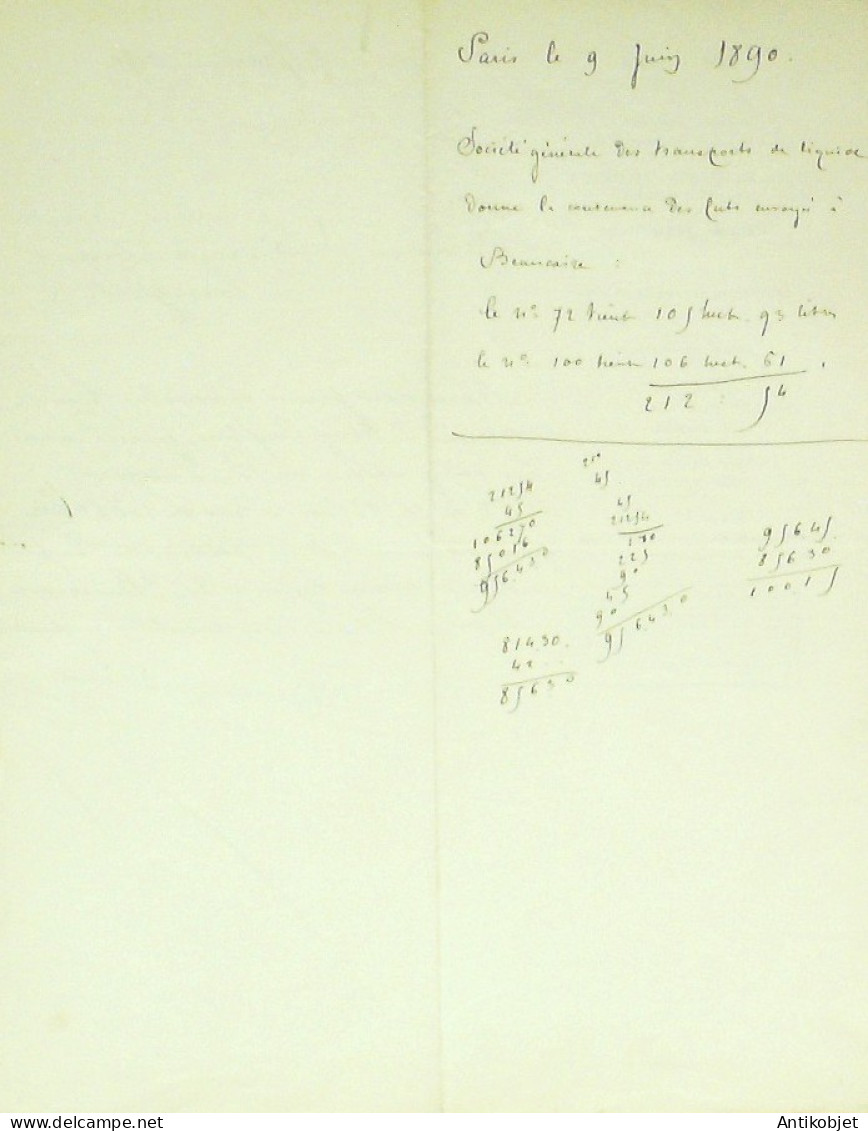 Paris le 9 Juin 1890.
Société générale des transports de liquide
donne la contenance des futs envoyés à
Beaucaire :
le n° 72 tient 105 hect. 93 litres
le n° 100 tient 106 hect 61 .
212 : 54
21254
45
106270
85016
956.430
210
45
45
21254
180
225
90
45
90
956.43.0
95645
85630
10015
81430.
42
85630
Antikobjet